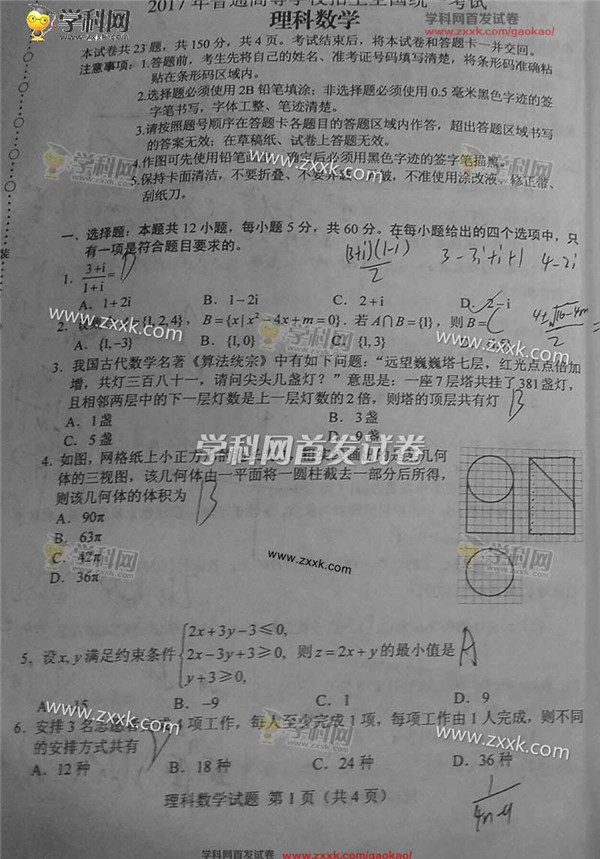 学科网首发试卷
2017年普通高等学校招生全国统一考试
www.zxxk.com/gaokao/
理科数学
本试卷共 23 题，共 150 分，共 4 页。考试结束后，将本试卷和答题卡一并交回。
注意事项：1.答题前，考生先将自己的姓名、准考证号码填写清楚，将条形码准确粘
贴在条形码区域内。
2.选择题必须使用 2B 铅笔填涂；非选择题必须使用 0.5 毫米黑色字迹的签
字笔书写，字体工整、笔迹清楚。
3.请按照题号顺序在答题卡各题目的答题区域内作答，超出答题区域书写
的答案无效；在草稿纸、试卷上答题无效。
4.作图可先使用铅笔画 确定后必须用黑色字迹的签字笔描黑。
5.保持卡面清洁，不要折叠、不要弄 不准使用涂改液、修正带、
刮纸刀。
学科网
www.zxxk.com
一、选择题：本题共 12 小题，每小题 5 分，共 60 分。在每小题给出的四个选项中，只
有一项是符合题目要求的。
(3+i)(1-i)/2 3-3i+i+1 4-2i
1. (3+i)/(1+i)= D
A. 1+2i B. 1-2i C. 2+i D. 2-i
2. {1,2,4}，B={x|x²-4x+m=0}. 若 A∩B={1}，则 B= C
A. {1,-3} B. {1,0} C. {1,3}
3. 我国古代数学名著《算法统宗》中有如下问题：“远望巍巍塔七层，红光点点倍加
增，共灯三百八十一，请问尖头几盏灯？”意思是：一座 7 层塔共挂了 381 盏灯，
且相邻两层中的下一层灯数是上一层灯数的 2 倍，则塔的顶层共有灯 B
A. 1 盏 B. 3 盏
C. 5 盏 D. 9 盏
学科网首发试卷
4. 如图，网格纸上小正方形 几何
体的三视图，该几何体由一平面将一圆柱截去一部分后所得，
则该几何体的体积为 B
A. 90π
B. 63π
C. 42π
D. 36π
5. 设 x, y 满足约束条件 {2x+3y-3≤0, 2x-3y+3≥0, y+3≥0, 则 z=2x+y 的最小值是 A
A. -15 B. -9 C. 1 D. 9
6. 安排 3 名志愿者 4 项工作，每人至少完成 1 项，每项工作由 1 人完成，则不同
的安排方式共有 D
A. 12 种 B. 18 种 C. 24 种 D. 36 种
理科数学试题 第 1 页（共 4 页）
学科网首发试卷 www.zxxk.com/gaokao/